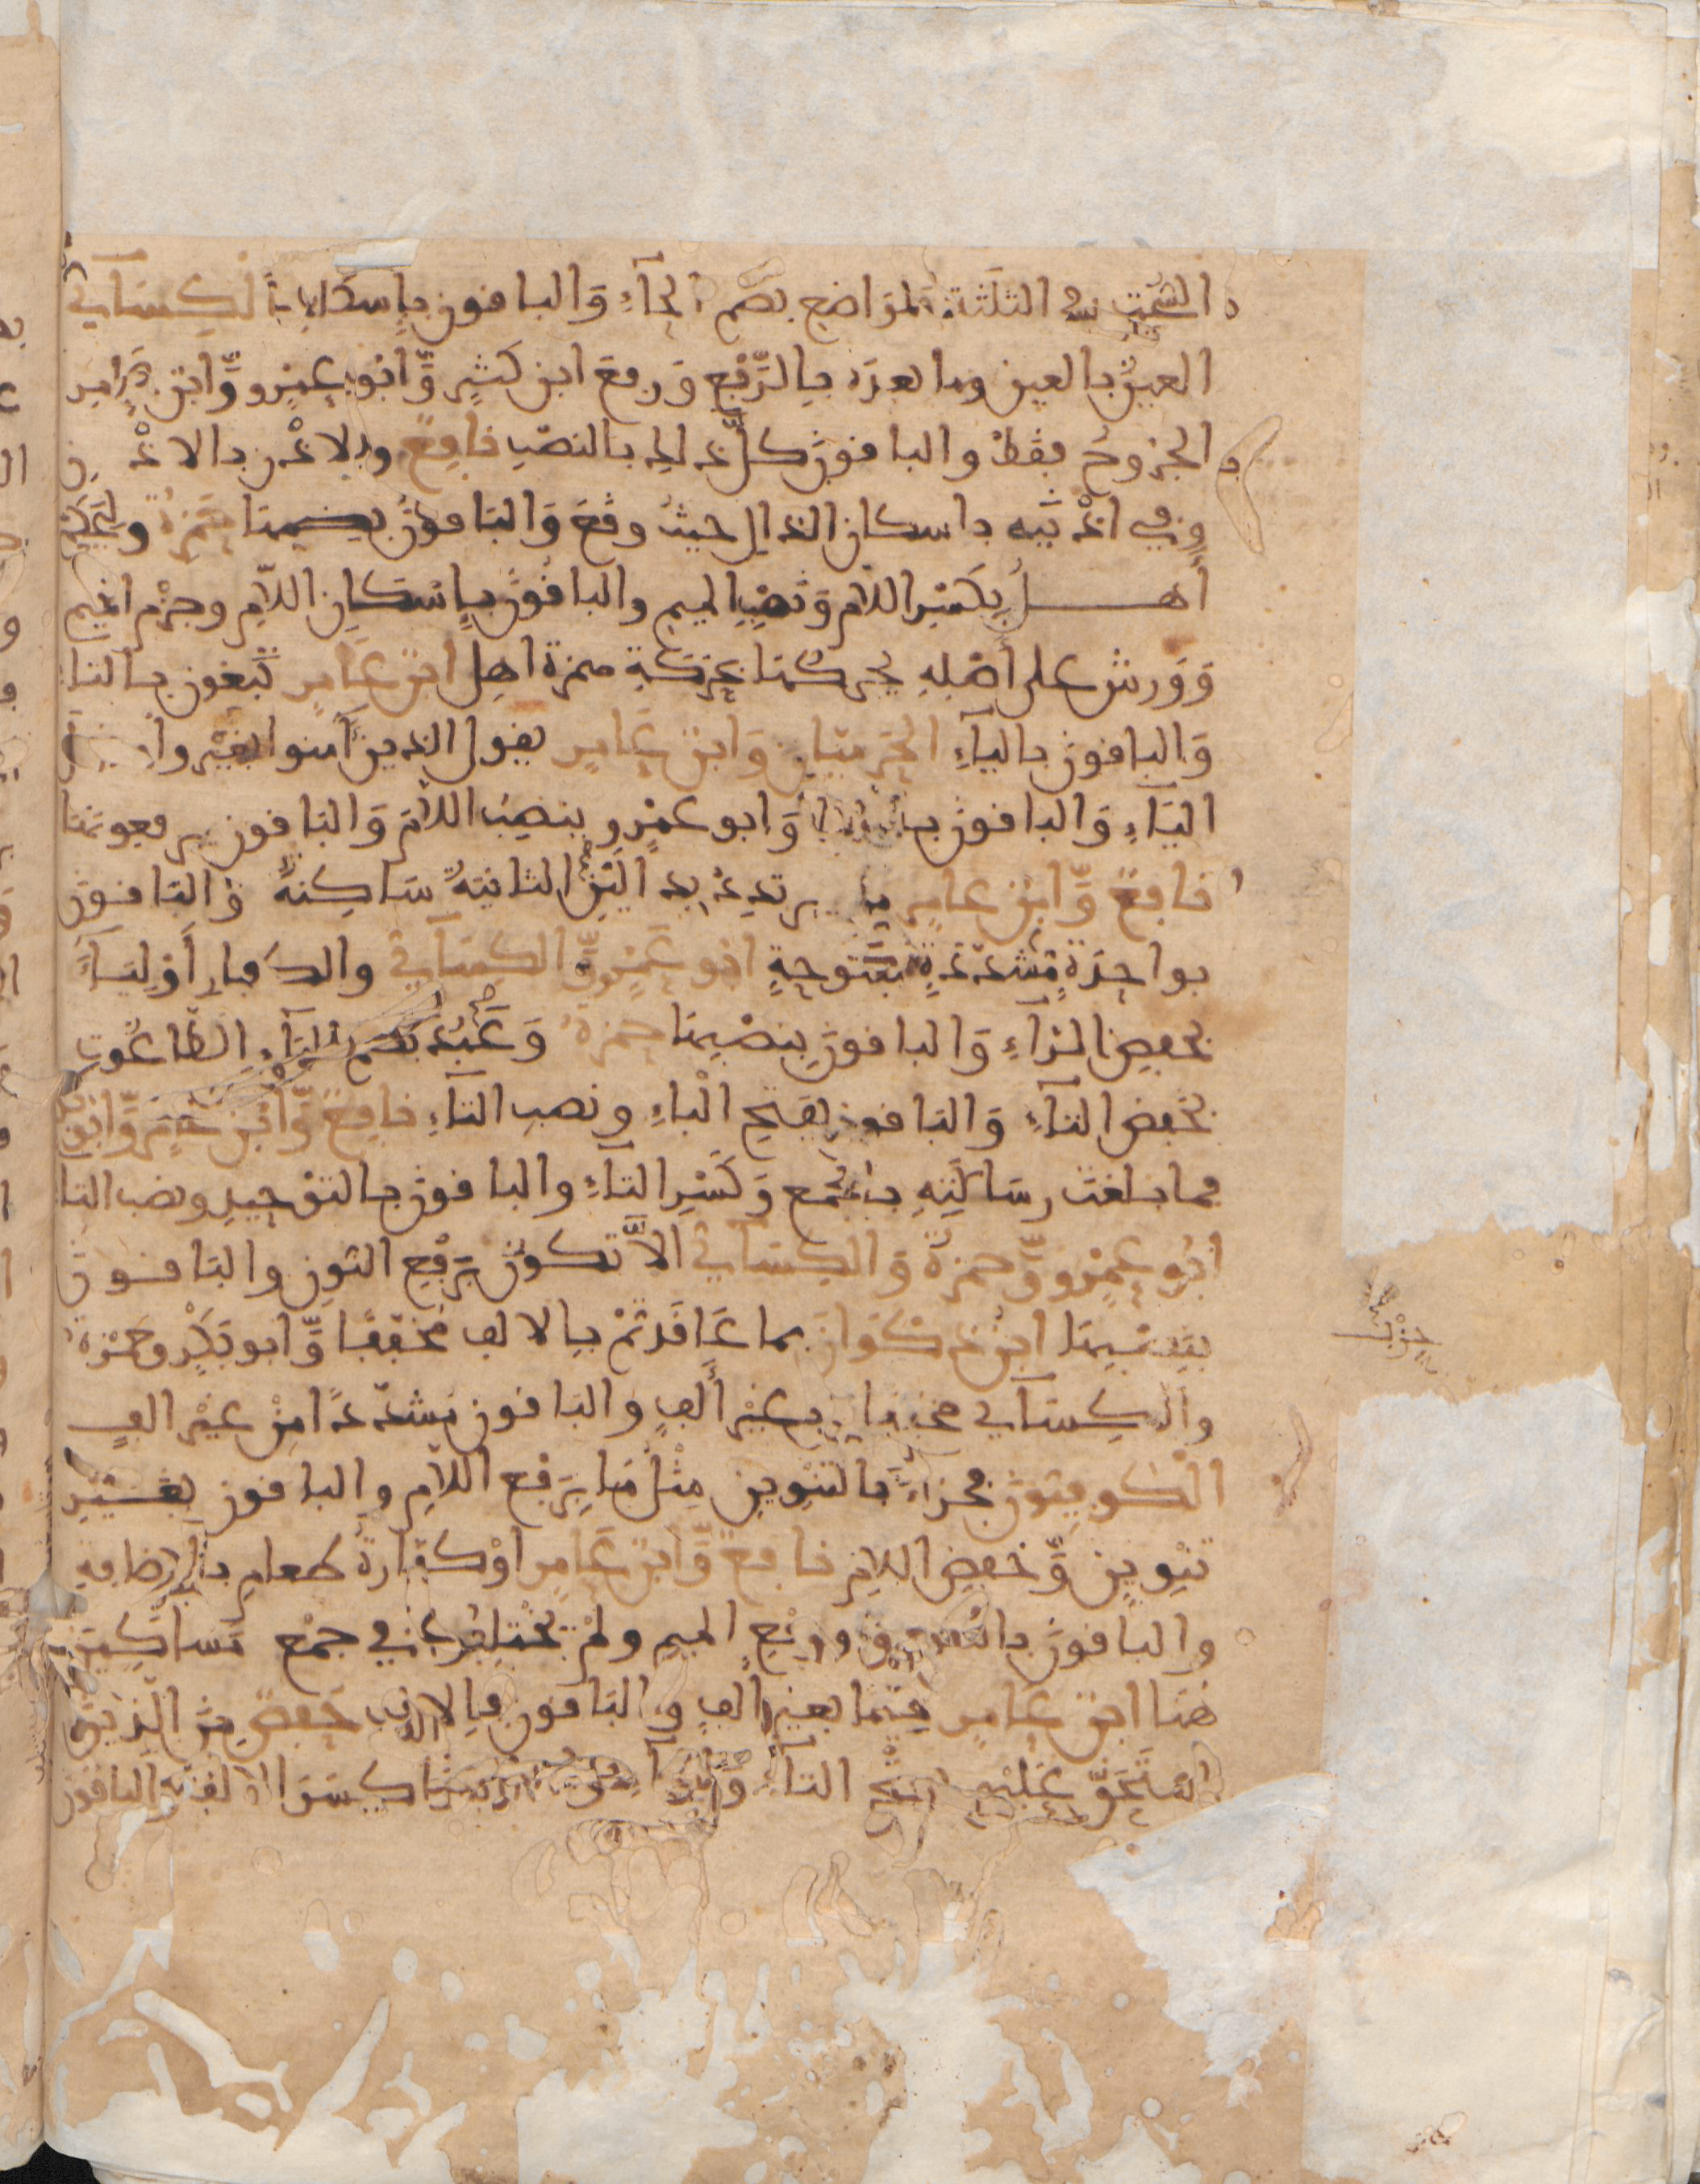 السحت في الثلثة المواضع بضم الحآءِ وَالبافون بإسكانها الكسآئي
العينُ بالعين وما بعده بالرَّفْعِ وَرفعَ ابن كثيرٍ وَّأبو عمرٍو وَّابن عامر
والجروحُ ففطْ والبافون كلَّ ذلك بالنصْبِ نافعٌ والاذْن بالاذن
وفي اذْنيه باسكان الذال حيثُ وفعَ وَالبافونَ بضمها حمزةُ وليحكمَ
أهـــلُ بكسْرِ اللام وَنصْبِ الميم والبافون بإسْكانِ اللامِ وجزْم الميم
وَوَرش على أصْلهِ يحركها بحركةِ همزة اهل ابن عامر تبغون بالتا
وَالبافون باليآءِ الحرميان وَابن عامر يفول الذين آمنوا بغير واو
اليآءِ وَالبافون بالواو وَابو عمْرٍو بنصب اللام وَالبافون يرفعونها
نافعٌ وَّابن عامر من يرتدد بدالين الثانيةُ ساكنةٌ وَالبافون
بواحدةٍ مشددةٍ مفتوحةٍ أبو عمرٍو وَّالكسآئي والكفار أوليآءَ
بخفض الرآءِ وَالبافون بنصبها حمزةُ وَعَبُدَ بضم البآءِ الطاغوت
بخفض التآءِ وَالبافون بفتح البآءِ ونصب التآءِ نافع وَّابن عامر وَّابو بكر
فما بلغت رسالته بالجمع وَكسْرِ التآءِ والبافون بالتوْحيدِ ونصب التا
أبُو عمرٍو وَّحمزةُ وَالكسآئي الاَّ تكونُ برفْعِ النون والبافون
بنصبها ابن ذكوان بما عَافَدتُمْ بالالف مخففًا وَّابو بكْرٍ وحمْزة
والكسآئي مخففا بغيْرِ ألفٍ والبافون مشدّدًا مِنْ غيْر الفٍ
الكوفيون فجزآءٌ بالتنوين مِثْلُ مَا برفع اللامِ والبافون بغيْرِ
تنوينٍ وَّخفض اللام نافعٌ وَّابن عَامر اوْ كفارةُ طعام بالإضافةِ
والبافون بالتنوين ورفْعِ الميم ولمْ يختلفُوا في جمْع مساكين
هنا ابن عامر فيما بغير الف والبافون بالالف حفص من الذين
استحقَّ عليهم بفتح التآءِ وَالحآءِ كسَرَ الالف والبافون
حزب